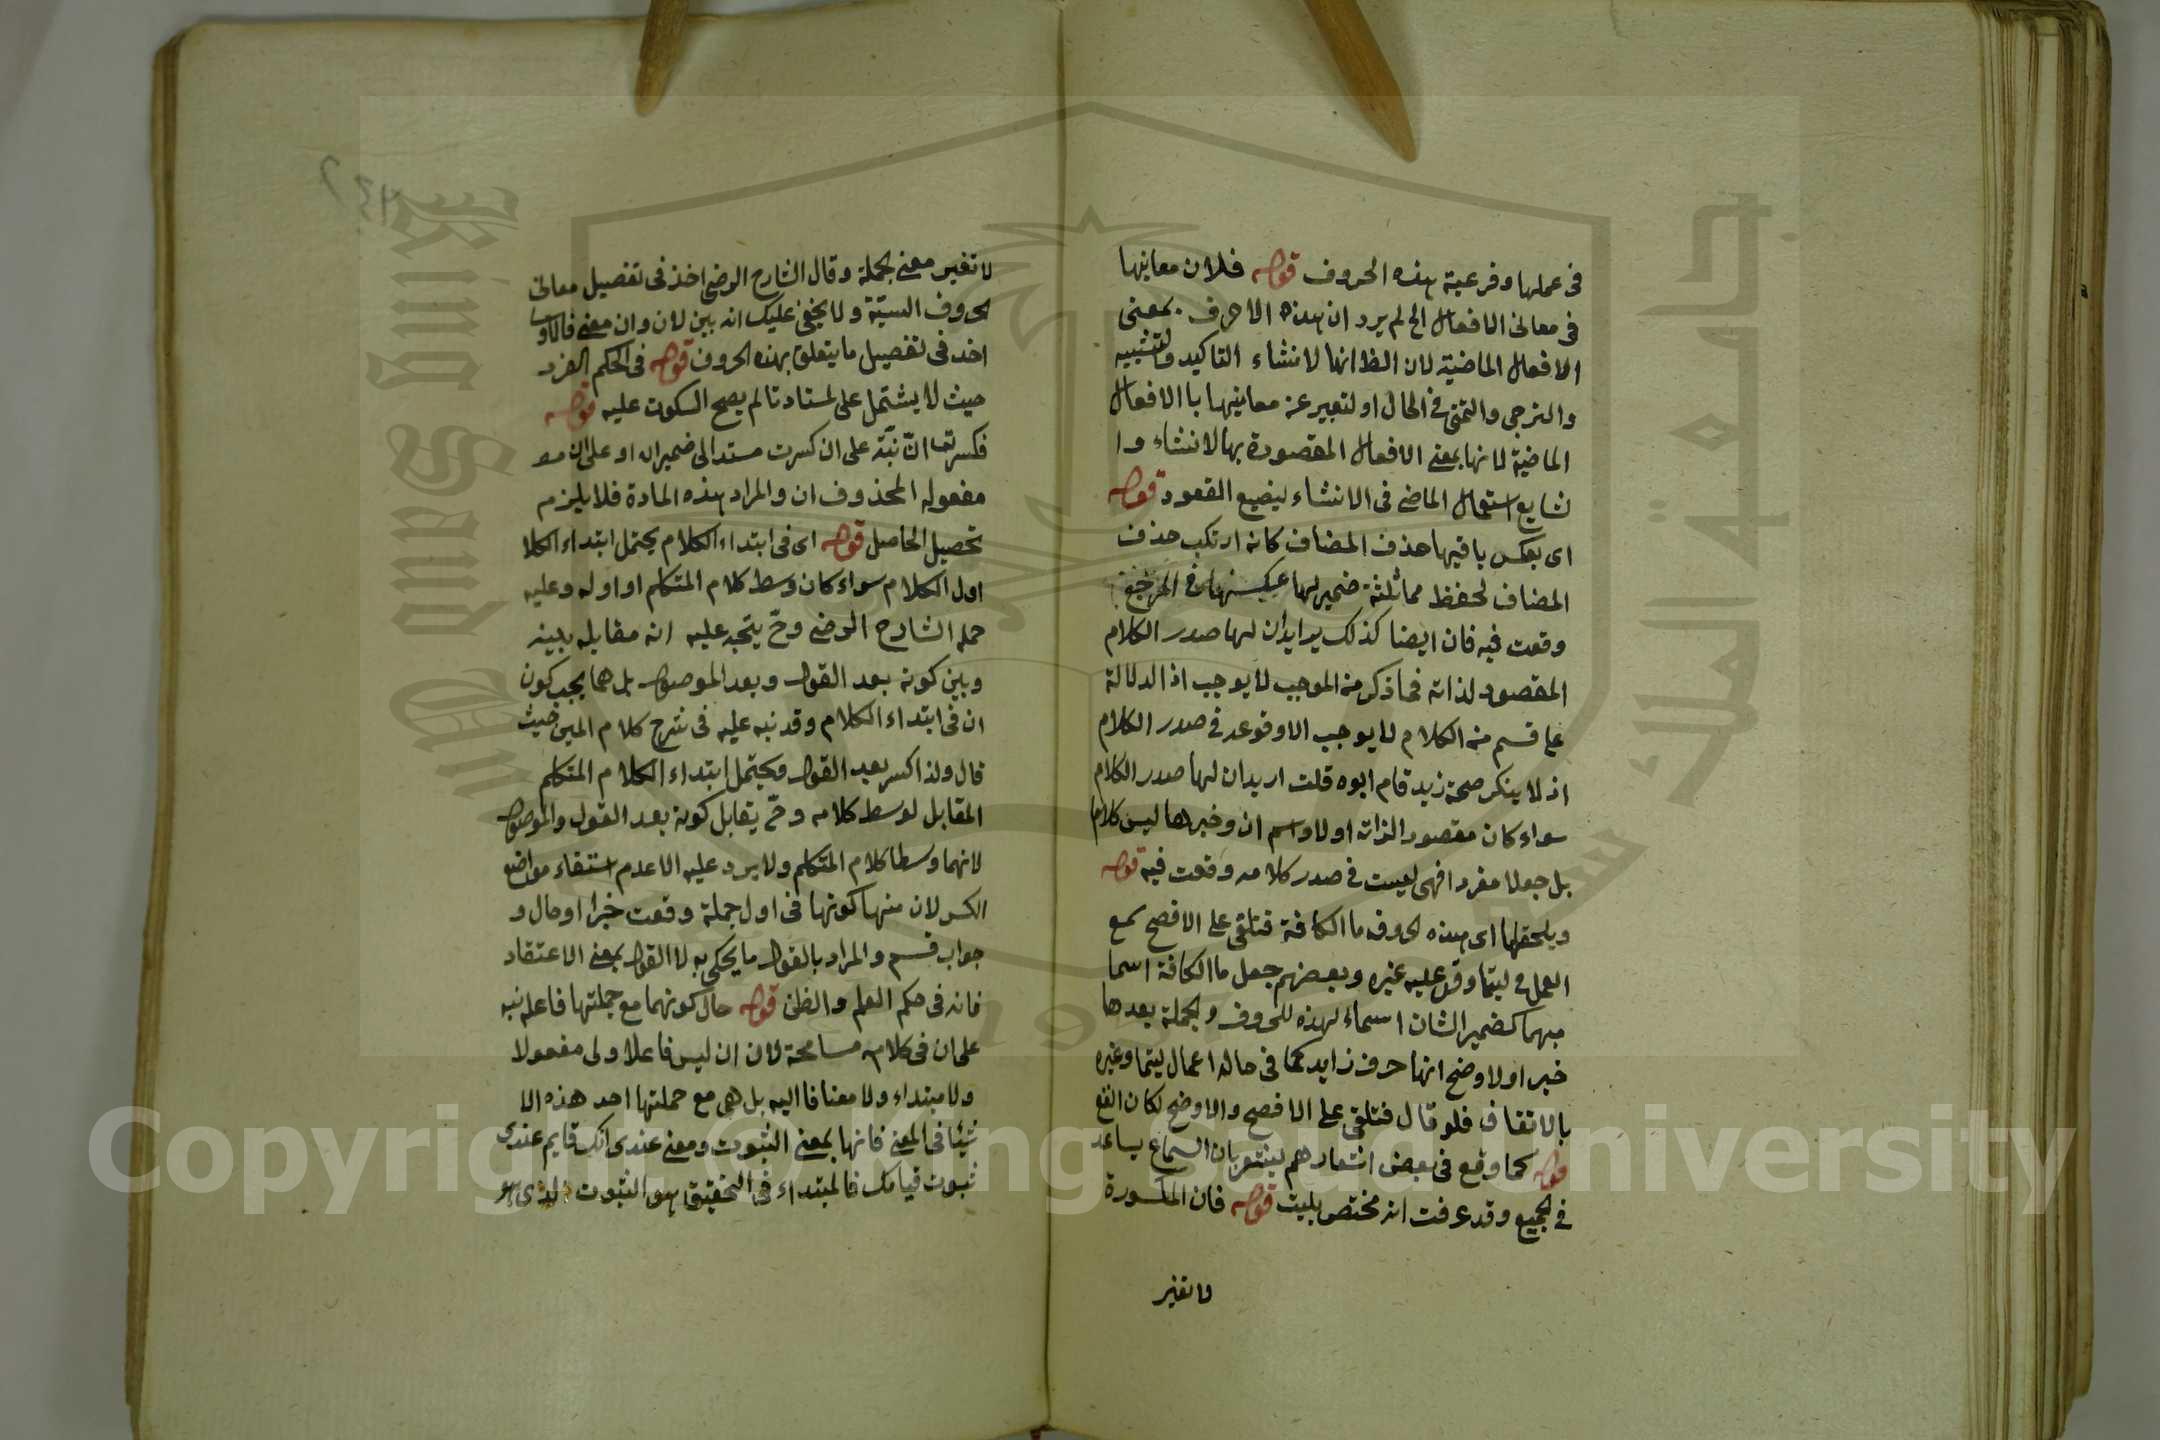 فى عملها وفرعية هذه الحروف قوله فلان معانيها
فى معانى الافعال الخ لم يرد ان هذه الاحرف بمعنى
الافعال الماضية لان الظ انها لانشاء التاكيد والتشبيه
والترجى والتمنى فى الحال او لتعبير عن معانيها با الافعال
الماضية لانها بمعنى الافعال المقصودة بها الانشاء وا
لشايع استعمال الماضى فى الانشاء ليضيع القعود قوله
اى بعكس باقيها حذف المضاف كانه ارتكب حذف
المضاف لحفظ مماثلثة ضمير لها
وقعت فيه فان ايضا كذلك يرايد ان لها صدر الكلام
المقصود لذاته فما ذكر من الموجب لا يوجب اذ الدلالة
على قسم من الكلام لا يوجب الا وقوعه فى صدر الكلام
اذ لا ينكر صحة زيد قام ابوه قلت اريد ان لها صدر الكلام
سواء كان مقصود الذاته او لا واسم ان وخبرها ليس كلاما
بل جعلا مفردا فهى ليست فى صدر كلامه وقعت فيه قوله
ويلحقها اى هذه الحروف ما الكافة فتلقى على الافصح سمع
العمل فى ليتما وقع عليه غيره وبعضهم جعل ما الكافة اسما
مبهما كضمير الشان اسماء لهذه للحروف والجملة بعدها
خبر اولا وضح انها حرف زايد كما فى حاله اعمال ليتما وغيره
بالاتفاق فلو قال فتلقى على الافصح والاوضح لكان انفع
قوله كما وقع فى بعض اشعارهم ليشعر بان السماع يساعد
فى الجميع وقد عرفت انه مختص بليت قوله فان المكسورة
لا تغير
لا تغير معنى لجملة وقال الشارح الرضى اخذ فى تفصيل معانى
الحروف الستة ولا يخفى عليك انه بين لان وان معنى فالاولى
اخذ فى تفصيل ما يتعلق بهذه الحروف قوله فى الحكم المفرد
حيث لا يشتمل على لسناد تالم يصح السكوت عليه قوله
فكسرتها انّ نبّه على ان كسرت مستد الى ضمير ان او على ان
مفعوله المحذوف ان والمراد هذه المادة فلا يلزم
تحصيل الحاصل قوله اى فى ابتداء الكلام يحتمل ابتداء الكلا
اول الكلام سواء كان وسط كلام المتكلم او اوله وعليه
حمله الشارح الرضى وحّ يتجه عليه انه مقابله بينه
وبين كونه بعد القول وبعد الموصول بل هما يجب كون
ان فى ابتداء الكلام وقد نبه عليه فى شرح كلام المص حيث
قال ولذا كسر بعد القول ويحتمل ابتداء الكلام المتكلم
المقابل لوسط كلامه وحّ يقابل كونه بعد القول والموصول
لانهما وسطا كلام المتكلم ولا يرد عليه الا عدم استقاء مواضع
الكسر لان منها كونها فى اول جملة وقعت خبرا او حال و
جواب قسم والمراد بالقول ما يحكى به لا القول بمعنى الاعتقاد
فانه فى حكم العلم والظن قوله حال كونهما مع جملتها فاعله نبه
على ان فى كلامه مسامحة لان ان ليس فاعلا ولى مفعولا
ولا مبتداء ولا معنافا اليه بل هى مع جملتها احد هذه الا
شيئا فى المعنى فانها بمعنى الثبوت ومعنى عندى انك قايم عندى
ثبوت قيامك فالمبتداء فى التحقيق هو الثبوت الذى هو
Copyright © King Saud University
King Saud University
جامعة الملك سعود
1957